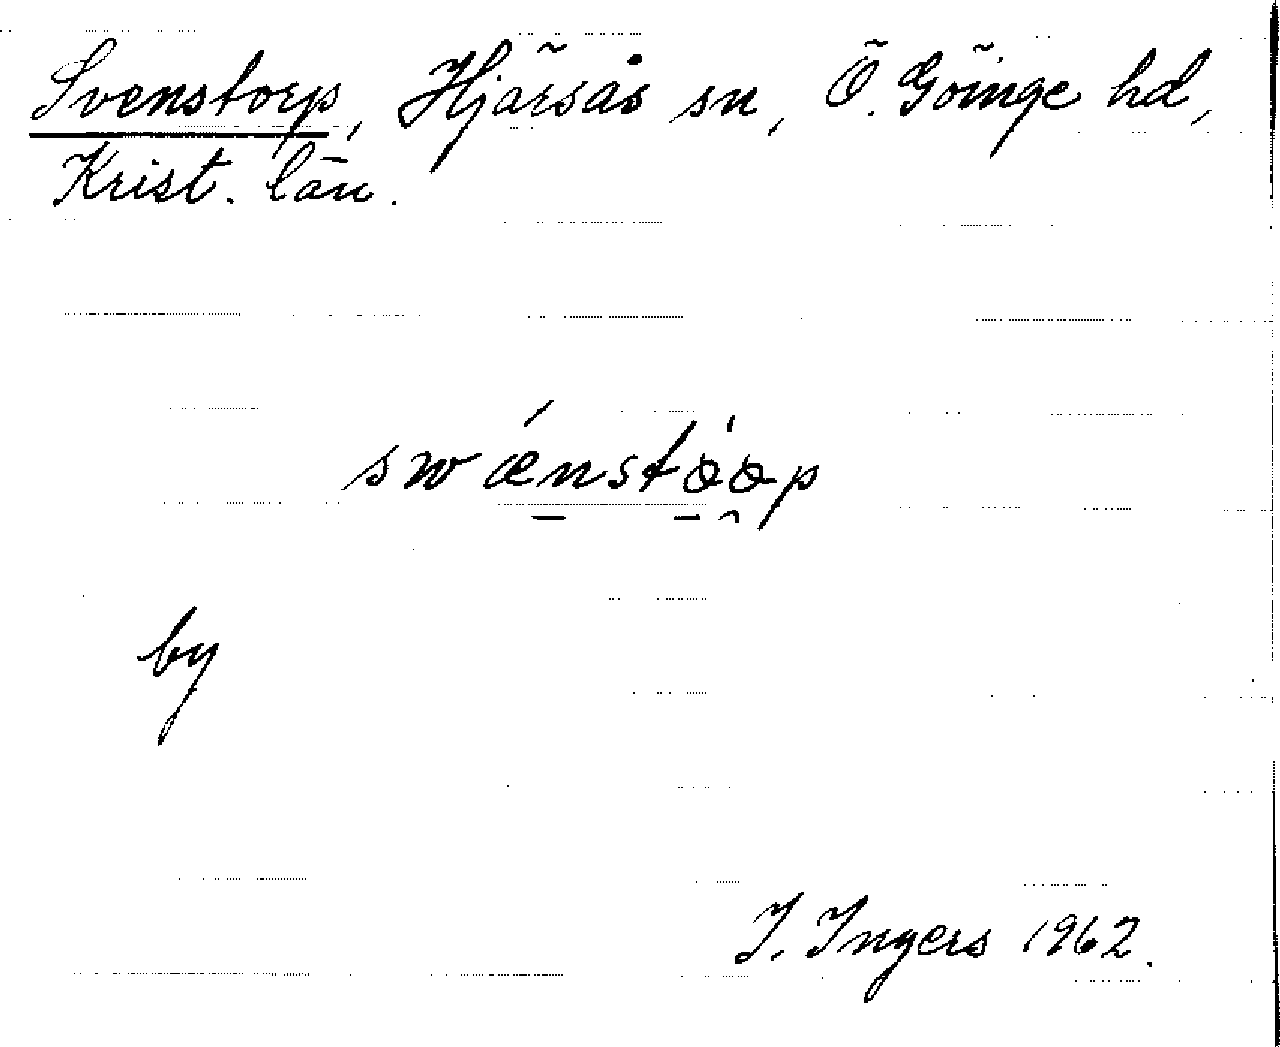 Svenstorp, Hjärsås sn, Ö. Göinge hd,
Krist. län.
swænstøøp
by
I. Ingers 1962.